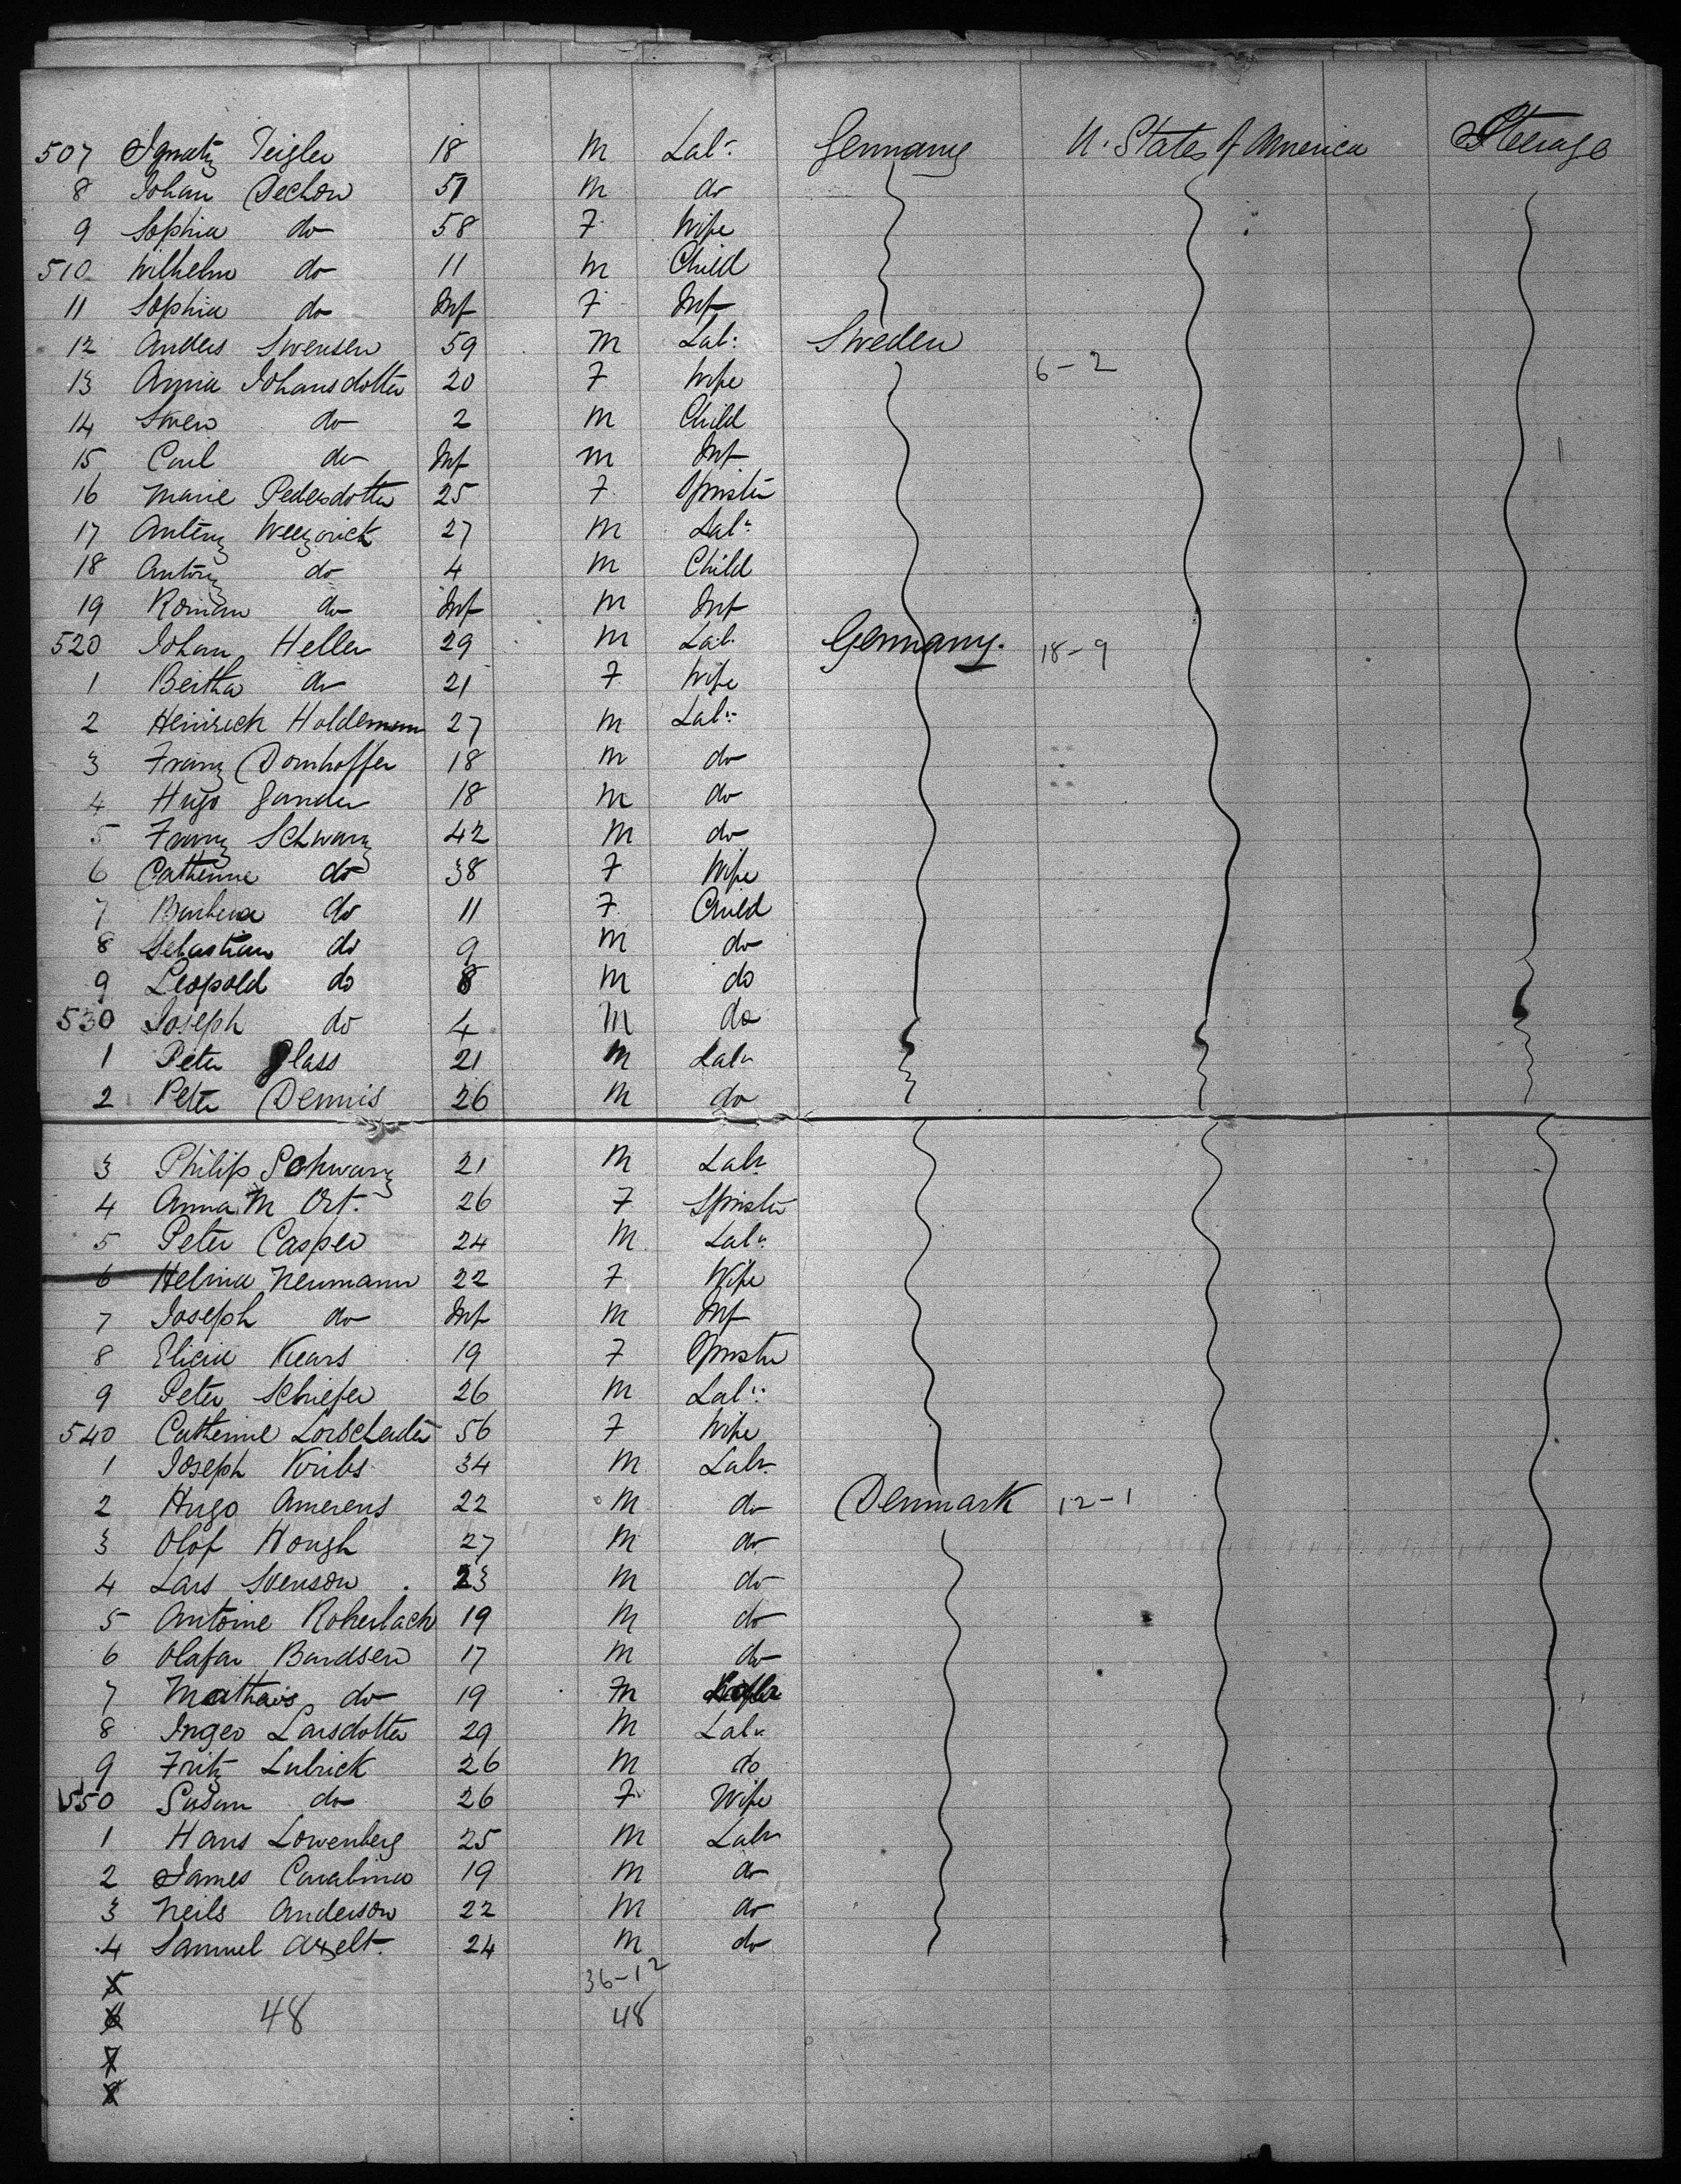 507 Ignatz Teigler 18 M Labr. Germany U. States of America Steerage
8 Johan Dechow 51 M do
9 Sophia do 58 F Wife
510 Wilhelm do 11 M Child
11 Sophia do Inf F Inf
12 Anders Swensen 59 M Labr. Sweden
13 Anna Johansdotter 20 F Wife 6-2
14 Swen do 2 M Child
15 Carl do Inf M Inf
16 Marie Pedersdotter 25 F Spinster
17 27 M Labr.
18 Antony do 4 M Child
19 Roman do Inf M Inf
520 Johan Heller 29 M Lab. Germany. 18-9
1 Bertha do 21 F Wife
2 Heinrich Holdemann 27 M Labr.
3 Franz Domhoffer 18 M do
4 Hugo Gander 18 M do
5 Franz Schwarz 42 M do
6 Catherine do 38 F Wife
7 Barbera do 11 F Child
8 Sebastian do 9 M do
9 Leopold do 8 M do
530 Joseph do 4 M do
1 Peter Glass 21 M Labr
2 Peter Dennis 26 M do
3 Philip Schwarz 21 M Labr
4 Anna M Ort. 26 F Spinster
5 Peter Casper 24 M Labr.
6 Helina Neumann 22 F Wife
7 Joseph do Inf M Inf
8 Elicia Kears 19 F Spinster
9 Peter Schiefer 26 M Labr.
540 Catherine Lorscheider 56 F Wife
1 Joseph Kribs 34 M Labr.
2 Hugo Amerens 22 M do Denmark 12-1
3 Olof Hough 27 M do
4 Lars Svenson 23 M do
5 Antoine Roherbach 19 M do
6 Olafar Bardsen 17 M do
7 Mathais do 19 M
8 Inger Larsdotter 29 M Labr
9 Fritz Lubrick 26 M do
550 Susan do 26 F Wife
1 Hans Lowenberg 25 M Labr
2 James 19 M do
3 Neils Anderson 22 M do
4 Samuel Axelt. 24 M do
5 36-12
6 48 48
7
8